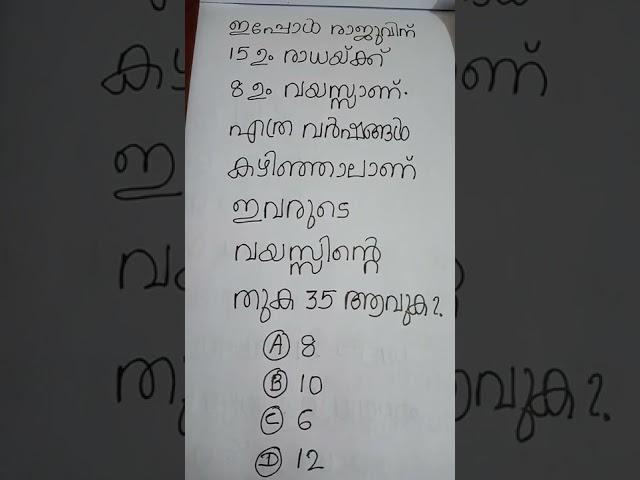 ഇപ്പോൾ രാജുവിന്
15 ഉം രാധയ്ക്ക്
8 ഉം വയസ്സാണ്.
എത്ര വർഷങ്ങൾ
കഴിഞ്ഞാലാണ്
ഇവരുടെ
വയസ്സിന്റെ
തുക 35 ആവുക?
Ⓐ 8
Ⓑ 10
Ⓒ 6
Ⓓ 12